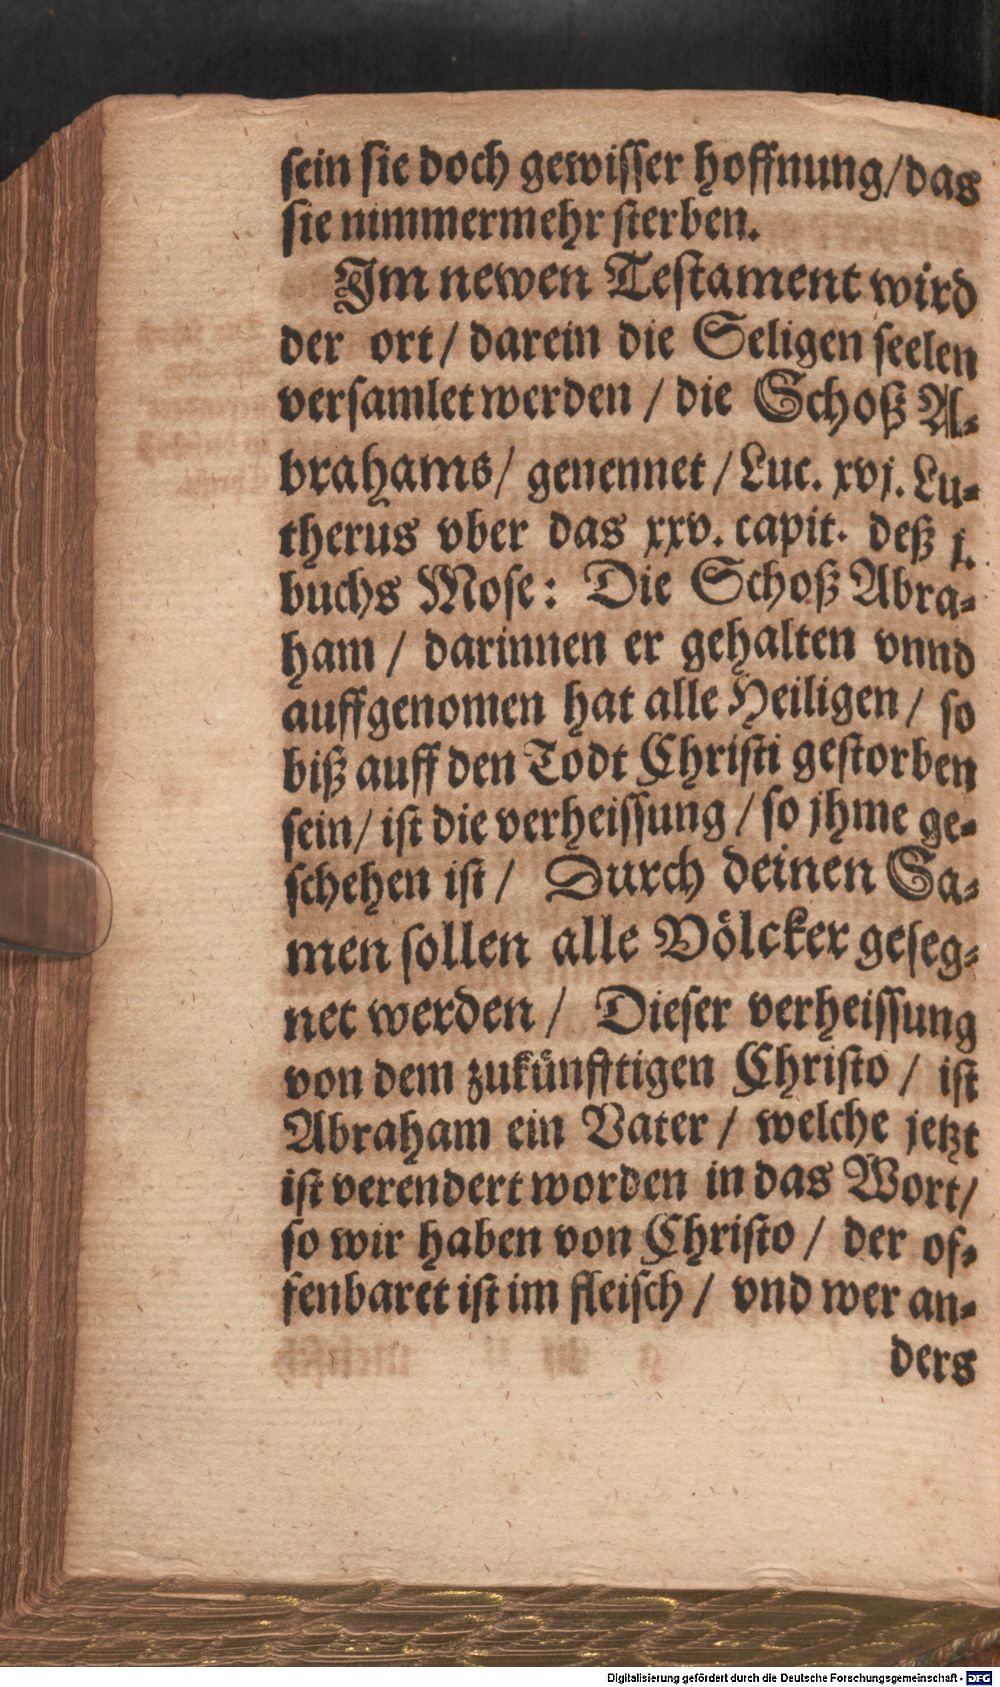 sein sie doch gewisser hoffnung/das
sie nimmermehr sterben.
Im newen Testament wird
der ort/ darein die Seligen seelen
versamlet werden / die Schoß A-
brahams/ genennet / Luc. xvj. Lu-
therus vber das xxv. capit. deß j.
buchs Mose: Die Schoß Abra-
ham / darinnen er gehalten vnnd
auffgenomen hat alle Heiligen / so
biß auff den Todt Christi gestorben
sein/ ist die verheissung / so jhme ge-
schehen ist / Durch deinen Sa-
men sollen alle Völcker geseg-
net werden / Dieser verheissung
von dem zukünfftigen Christo / ist
Abraham ein Vater / welche jetzt
ist verendert worden in das Wort/
so wir haben von Christo / der of-
fenbaret ist im fleisch / vnd wer an-
ders
Digitalisierung gefördert durch die Deutsche Forschungsgemeinschaft - DFG